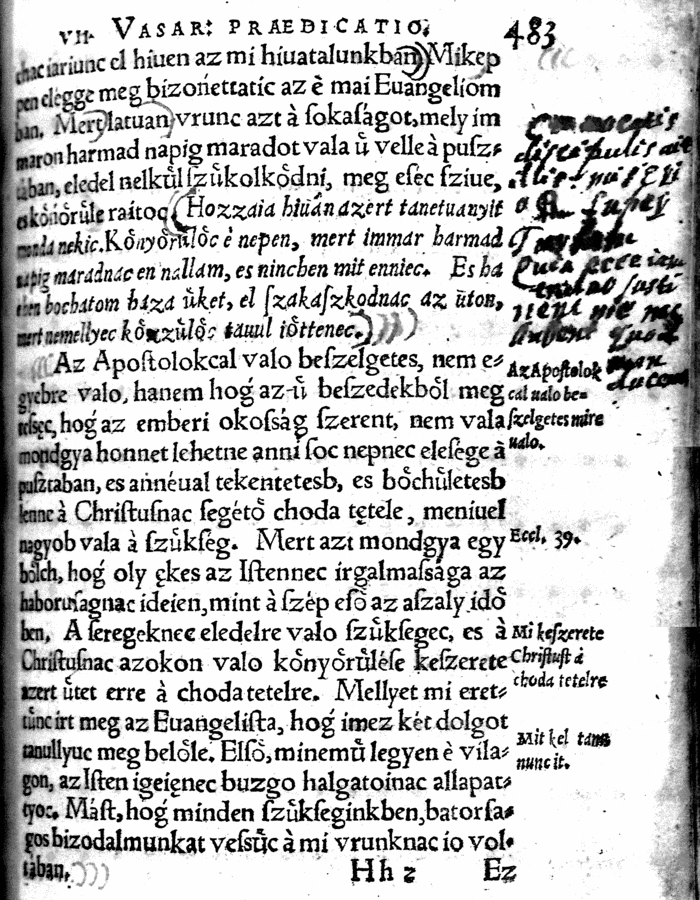 VII. VASAR: PRAEDICATIO. 483
chac iariunc el hiuen az mi hiuatalunkban, Mikep
pen elegge meg bizońettatic az è mai Euangeliom
ban. Mert latuan vrunc azt à ſokaſágot, mely im
maron harmad napig maradot vala ǔ velle à puſz⸗
tában, eledel nelkǔl ſzǔkolkǒdni, meg eſec ſziue,
es kǒńǒrǔle raitoc. Hozzaia hiuán azert tanetuanyit
monda nekic. Kǒnyǒrǔlǒc è nepen, mert immar harmad
napig maradnac en nallam, es ninchen mit enniec. Es ha
ehen bochatom háza ǔket, el ſzakaſzkodnac az ǔton,
mert nemellyec kǒzzǔlǒc tauul iǒttenec.
Az Apoſtolokcal valo beſzelgetes, nem e⸗
gyebre valo, hanem hoǵ az ǔ beſzedekból meg
tetſęc, hoǵ az emberi okoſság ſzerent, nem vala
mondgya honnet lehetne anni ſoc nepnec eleſege à
puſztaban, es ańnéual tekentetesb, es bǒchǔletesb
lenne à Chriſtuſnac ſegétǒ choda tętele, meniuel
nagyob vala à ſzǔkſég. Mert azt mondgya egy
bǒlch, hoǵ oly ękes az Iſtennec irgalmaſsága az
haboruſagnac ideien, mint à ſzép eſǒ az aſzaly idǒ
ben, A ſeregeknec eledelre valo ſzǔkſegec, es à
Chriſtuſnac azokon valo kǒnyǒrǔléſe keſzerete
azert ǔtet erre à choda tetelre. Mellyet mi eret⸗
tǔnc irt meg az Euangeliſta, hoǵ imez két dolgot
tanullyuc meg belǒle. Elſǒ, minemǔ legyen è vila⸗
gon, az Iſten igeięnec buzgo halgatoinac allapat⸗
tyoc. Máſt, hoǵ minden ſzǔkſeginkben, batorſa⸗
gos bizodalmunkat veſsǔc à mi vrunknac io vol⸗
tában.
Hh 2 Ez
Az Apoſtolok
cal ualo be⸗
ſzelgetes mire
ualo.
Eccl. 39.
Mi keſzerete
Chriſtuſt à
choda tetelre
Mit kel tanu
nunc it.